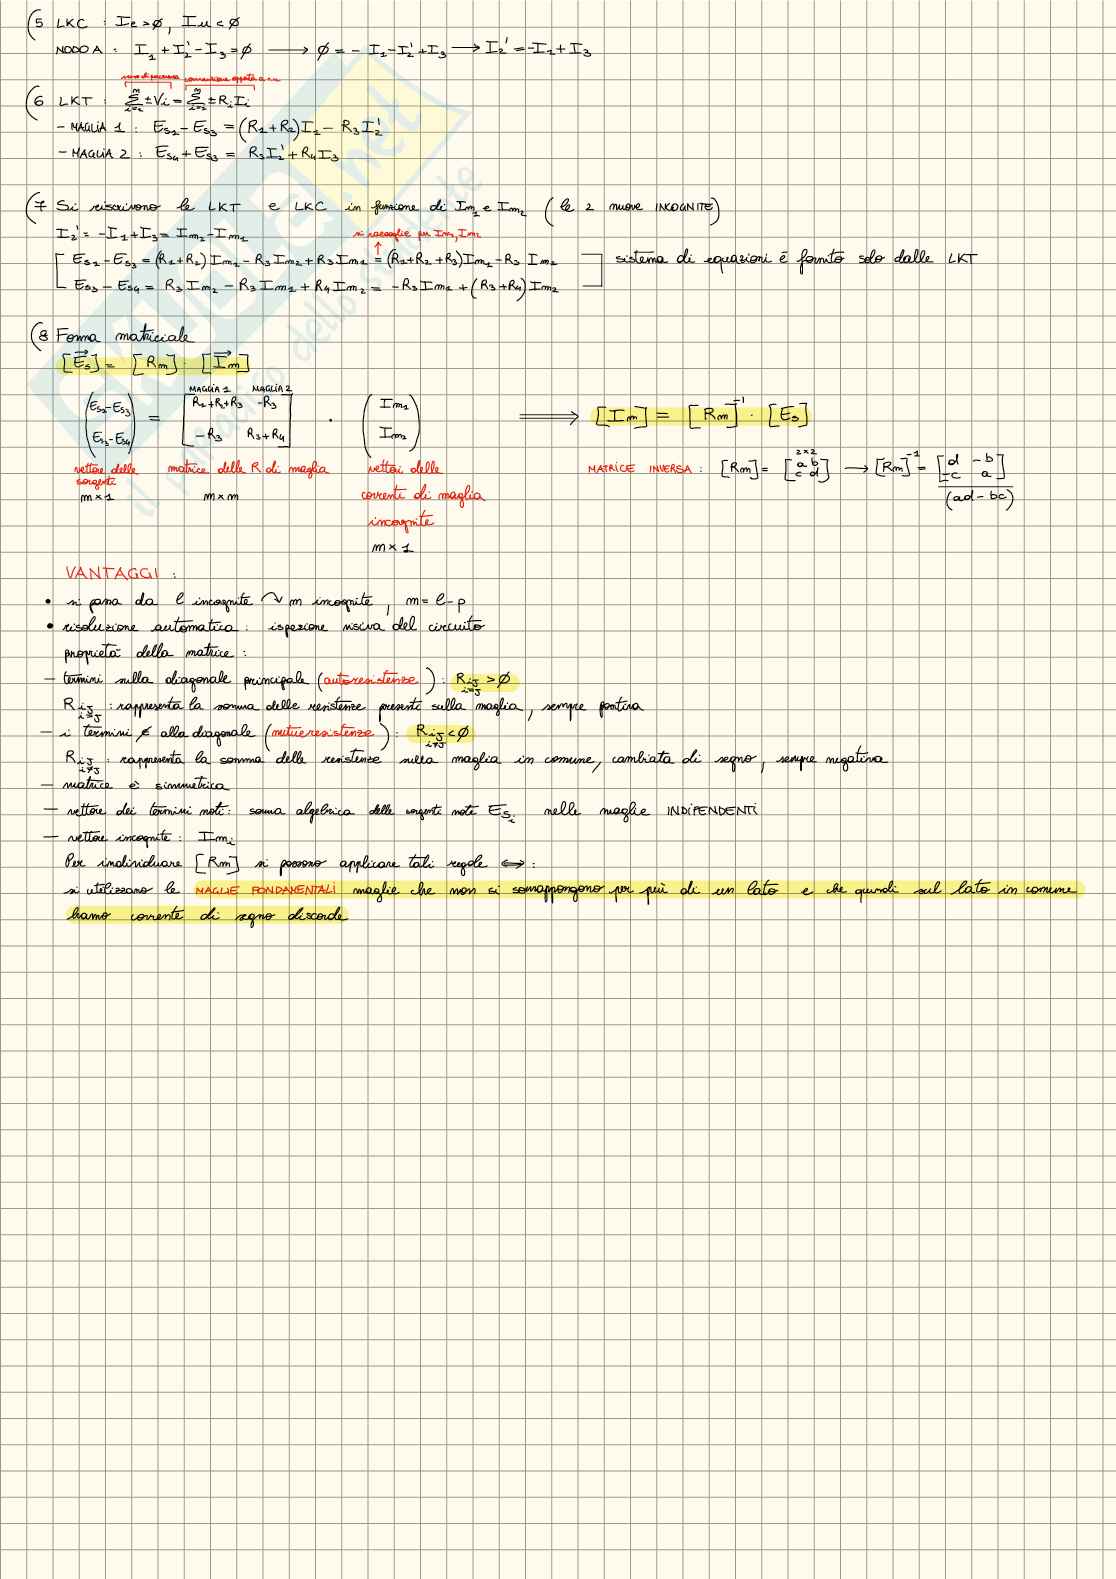 (5 LKC : Ie>ø, Iu<ø
NODO A : I₁+I₂'-I₃=ø ⟶ ø=-I₁-I₂'+I₃ ⟶ I₂'=-I₁+I₃
(6 LKT : Σ ±Vi = Σ ±RiIi
- MAGLIA 1 : Es₁-Es₃ = (R₁+R₂)I₁- R₃I₂'
- MAGLIA 2 : Es₄+Es₃ = R₃I₂'+R₄I₃
(7 Si riscrivono le LKT e LKC in funzione di Im₁ e Im₂ (le 2 nuove INCOGNITE)
I₂'= -I₁+I₃= Im₂-Im₁
si raccoglie per Im₁,Im₂
Es₁-Es₃=(R₁+R₂)Im₁-R₃Im₂+R₃Im₁ = (R₁+R₂+R₃)Im₁-R₃ Im₂
sistema di equazioni è fornito solo dalle LKT
Es₃-Es₄= R₃Im₂-R₃Im₁+R₄Im₂= -R₃Im₁+(R₃+R₄)Im₂
(8 Forma matriciale
[Es] = [Rm] · [Im]
MAGLIA 1 MAGLIA 2
Es₁-Es₃ = R₁+R₂+R₃ -R₃ · Im₁ ⟹ [Im] = [Rm]⁻¹ · [Es]
Es₃-Es₄ -R₃ R₃+R₄ Im₂
vettore delle sorgenti
m×1
matrice delle R di maglia
m×m
vettori delle
correnti di maglia
incognite
m×1
MATRICE INVERSA : [Rm]= 2×2 [a b c d] ⟶ [Rm]⁻¹ = [d -b -c a] / (ad-bc)
VANTAGGI :
• si passa da l incognite ↷ m incognite, m= l-p
• risoluzione automatica: ispezione visiva del circuito
proprietà della matrice :
- termini sulla diagonale principale (autoresistenze) : Rij i=j >ø
Rij i=j : rappresenta la somma delle resistenze presenti sulla maglia, sempre positiva
- i termini ∉ alla diagonale (mutueresistenze) : Rij i≠j <ø
Rij i≠j : rappresenta la somma delle resistenze nella maglia in comune, cambiata di segno, sempre negativa
- matrice è simmetrica
- vettore dei termini noti: somma algebrica delle sorgenti note Esi nelle maglie INDIPENDENTI
- vettore incognite : Imi
Per individuare [Rm] si possono applicare tali regole ⟺ :
si utilizzano le MAGLIE FONDAMENTALI maglie che non si somappongono per più di un lato e che quindi sul lato in comune
hanno corrente di segno discorde